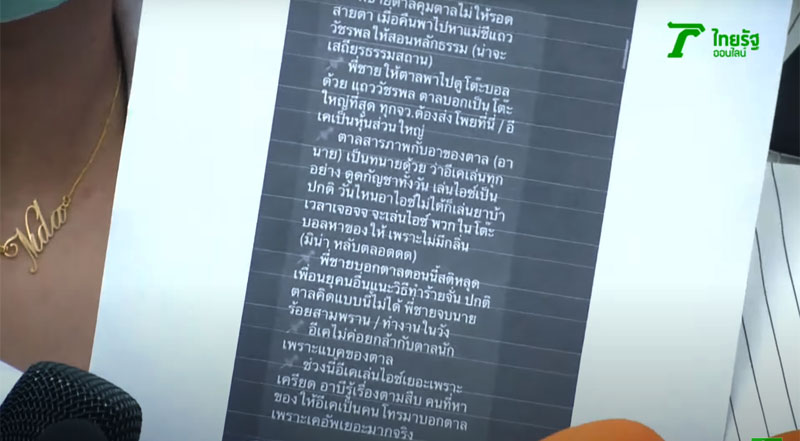 ไทยรัฐ
ออนไลน์
Nda
ตาลคุมตาลไม่ให้รอด
สายตา เมื่อคืนพาไปหาแม่ชีแถว
วัชรพลให้สอนหลักธรรม (น่าจะ
เสถียรธรรมสถาน)
📌 พี่ชายให้ตาลพาไปดูโต๊ะบอล
ด้วย แถววัชรพล ตาลบอกเป็นโต๊ะ
ใหญ่ที่สุด ทุกจว.ต้องส่งโพยที่นี่ / อี
เคเป็นหุ้นส่วนใหญ่
📌 ตาลสารภาพกับอาของตาล (อา
นาย) เป็นทนายด้วย ว่าอีเคเล่นทุก
อย่าง ดูดกัญชาทั้งวัน เล่นไอซ์เป็น
ปกติ วันไหนอาไอซ์ไม่ได้ก็เล่นยาบ้า
เวลาเจอจจ จะเล่นไอซ์ พวกในโต๊ะ
บอลหาของให้ เพราะไม่มีกลิ่น
(มิน่า หลับตลอดดด)
📌 พี่ชายบอกตาลตอนนี้สติหลุด
เพื่อนยุคนอื่นแนะวิธีทำร้ายจั่น ปกติ
ตาลคิดแบบนี้ไม่ได้ พี่ชายจบนาย
ร้อยสามพราน / ทำงานในวัง
📌 อีเคไม่ค่อยกล้ากับตาลนัก
เพราะแบคของตาล
📌 ช่วงนี้อีเคเล่นไอซ์เยอะเพราะ
เครียด อาบีรู้เรื่องตามสืบ คนที่หา
ของให้อีเคเป็นคนโทรมาบอกตาล
เพราะเคอัพเยอะมากจริง